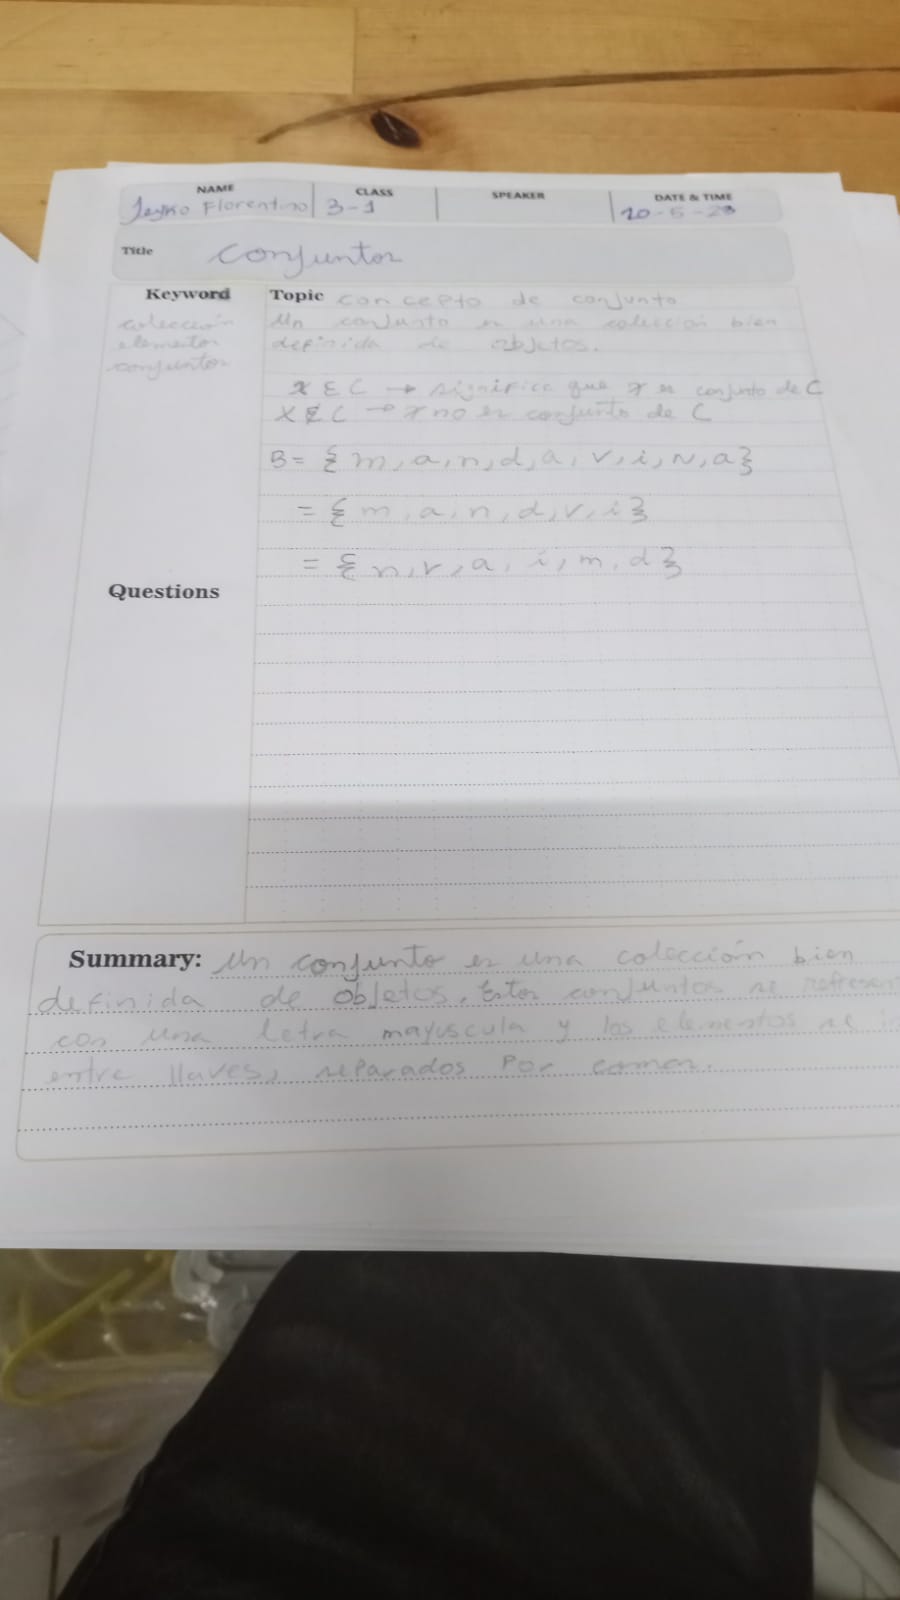 NAME CLASS SPEAKER DATE & TIME
Jeyko Florentino 3-1 20-5-23
Title Conjuntos
Keyword Topic concepto de conjunto
colección Un conjunto es una colección bien
elementos definida de objetos.
conjuntos
x ∈ C → significa que x es conjunto de C
X ∉ C → x no es conjunto de C
B = {m, a, n, d, a, r, i, N, a}
= {m, a, n, d, r, i}
= {n, r, a, i, m, d}
Questions
Summary: Un conjunto es una colección bien
definida de objetos. Estos conjuntos se
con una letra mayuscula y los elementos se
entre llaves, separados por comas.